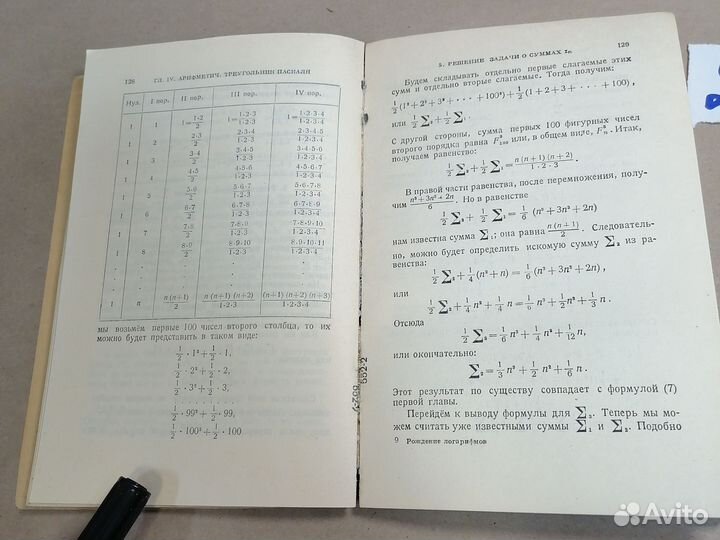 128 ГЛ. IV. АРИФМЕТИЧ. ТРЕУГОЛЬНИК ПАСКАЛЯ
Нул. I пор. II пор. III пор. IV пор.
1 1 1=1·2/2 1=1·2·3/1·2·3 1=1·2·3·4/1·2·3·4
1 2 2·3/2 2·3·4/1·2·3 2·3·4·5/1·2·3·4
1 3 3·4/2 3·4·5/1·2·3 3·4·5·6/1·2·3·4
1 4 4·5/2 4·5·6/1·2·3 4·5·6·7/1·2·3·4
1 5 5·6/2 5·6·7/1·2·3 5·6·7·8/1·2·3·4
1 6 6·7/2 6·7·8/1·2·3 6·7·8·9/1·2·3·4
1 7 7·8/2 7·8·9/1·2·3 7·8·9·10/1·2·3·4
1 8 8·9/2 8·9·10/1·2·3 8·9·10·11/1·2·3·4
1 n n(n+1)/2 n(n+1)(n+2)/1·2·3 n(n+1)(n+2)(n+3)/1·2·3·4
мы возьмём первые 100 чисел второго столбца, то их
можно будет представить в таком виде:
1/2·1²+1/2·1,
1/2·2²+1/2·2,
1/2·3²+1/2·3,
. . . . . . . . .
1/2·99²+1/2·99,
1/2·100²+1/2·100
5. РЕШЕНИЕ ЗАДАЧИ О СУММАХ 129
Будем складывать отдельно первые слагаемые этих
сумм и отдельно вторые слагаемые. Тогда получим:
1/2(1²+2²+3²+···+100²)+1/2(1+2+3+···+100),
или 1/2∑₂+1/2∑₁.
С другой стороны, сумма первых 100 фигурных чисел
второго порядка равна F³₁₀₀ или, в общем виде, F³ₙ. Итак,
получаем равенство:
1/2∑₂+1/2∑₁=n(n+1)(n+2)/1·2·3.
В правой части равенства, после перемножения, полу-
чим n³+3n²+2n/6. Но в равенстве
1/2∑₂+1/2∑₁=1/6(n³+3n²+2n)
нам известна сумма ∑₁; она равна n(n+1)/2. Следователь-
но, можно будет определить искомую сумму ∑₂ из ра-
венства:
1/2∑₂+1/4(n²+n)=1/6(n³+3n²+2n),
или
1/2∑₂+1/4n²+1/4n=1/6n³+1/2n²+1/3n.
Отсюда
1/2∑₂=1/6n³+1/4n²+1/12n,
или окончательно:
∑₂=1/3n³+1/2n²+1/6n.
Этот результат по существу совпадает с формулой (7)
первой главы.
Перейдём к выводу формулы для ∑₃. Теперь мы мо-
жем считать уже известными суммы ∑₁ и ∑₂. Подобно
9 Рождение логарифмов
Avito